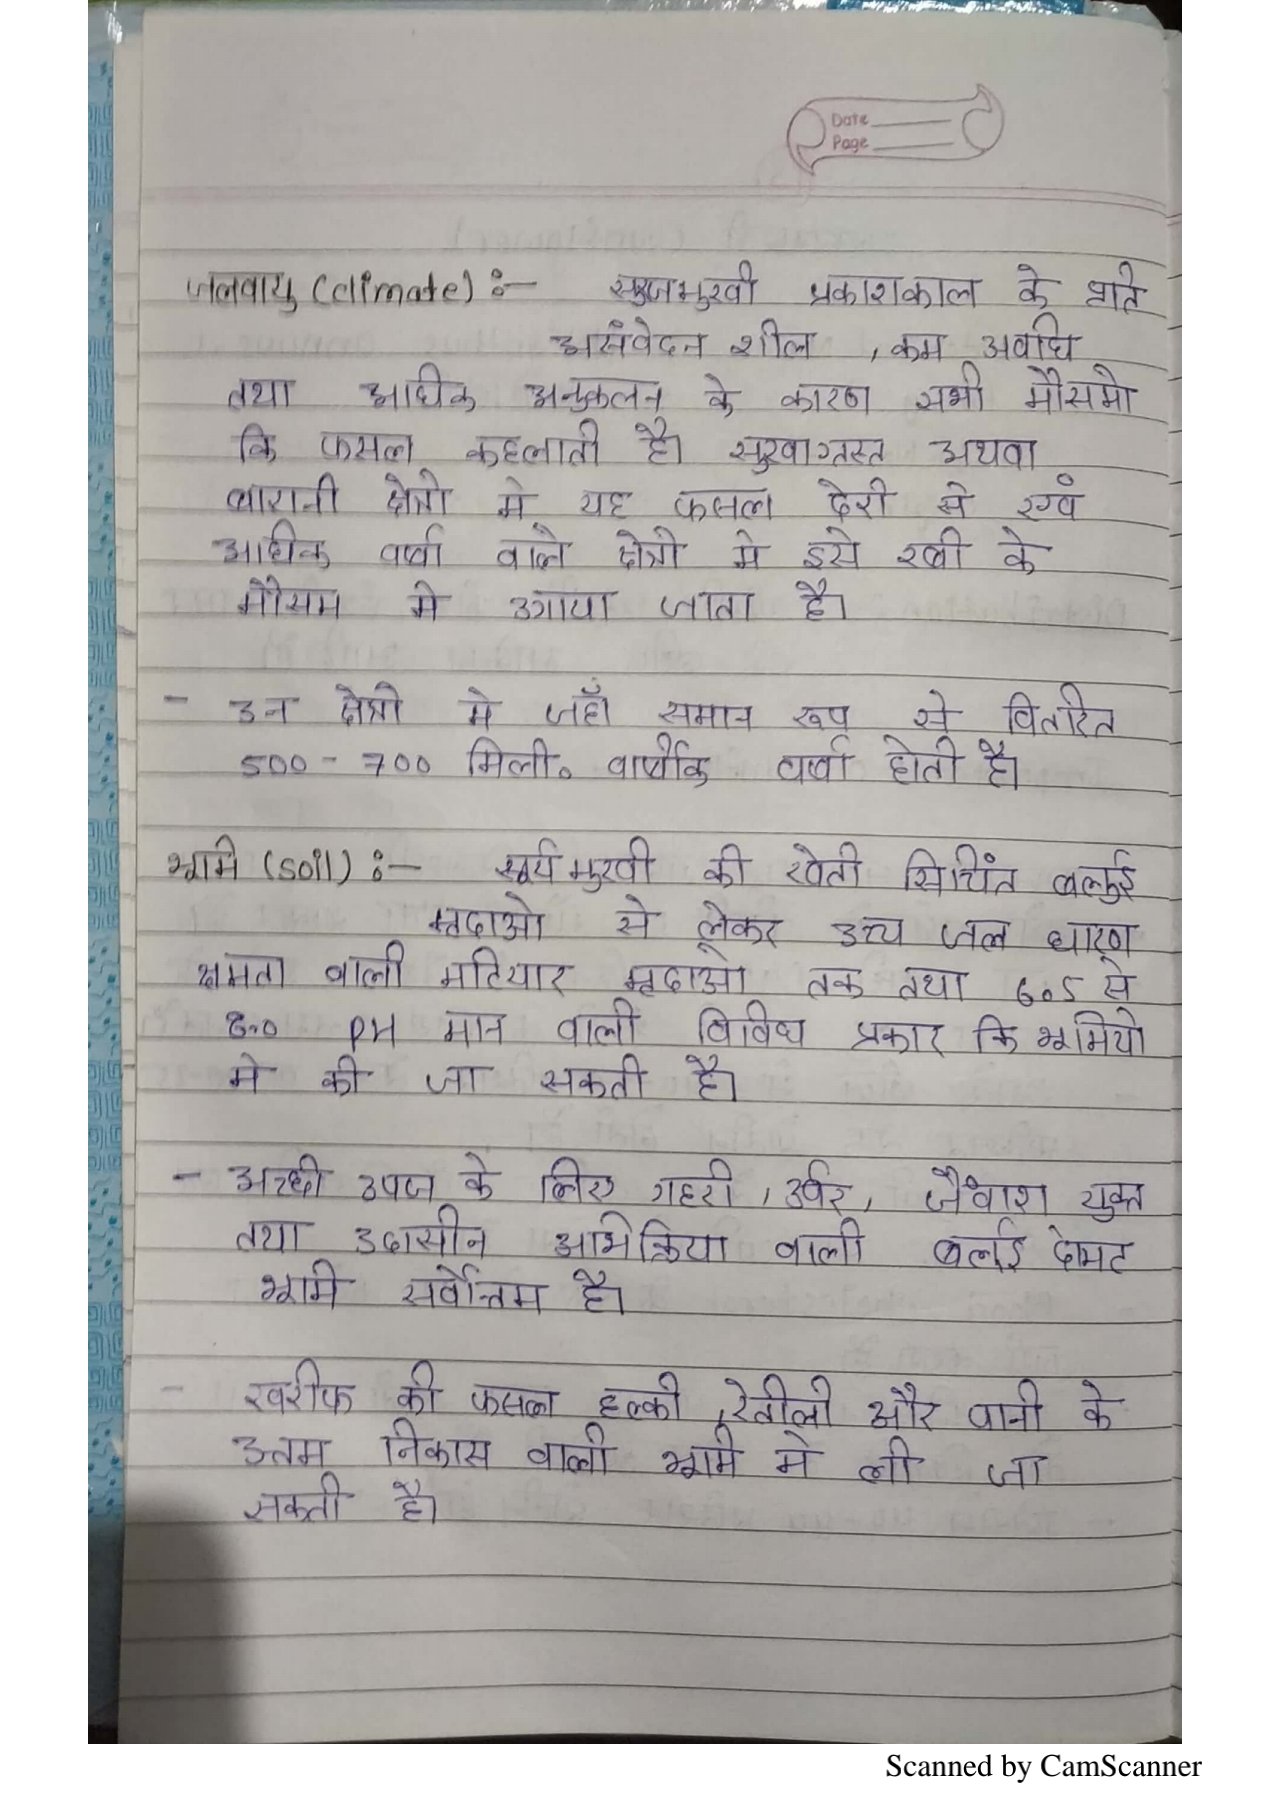 Date
Page
जलवायु (climate) :- सुरजमुखी प्रकाशकाल के प्रति
असंवेदन शील , कम अवधि
तथा अधिक अनुकुलन के कारण सभी मौसमो
कि फसल कहलाती है। सुखाग्रस्त अथवा
बारानी क्षेत्रो मे यह फसल देरी से एवं
अधिक वर्षा वाले क्षेत्रो मे इसे रबी के
मौसम मे उगाया जाता है।
- उन क्षेत्रो मे जहाँ समान रूप से वितरित
500 - 700 मिली० वार्षीक वर्षा होती है।
भूमि (soil) :- सूर्यमुखी की खेती सिचिंत बलुई
मृदाओ से लेकर उच्च जल धारण
क्षमता वाली मटियार मृदाओ तक तथा 6.5 से
8.0 PH मान वाली विविध प्रकार कि भूमियो
मे की जा सकती है।
- अच्छी उपज के लिए गहरी , उर्वर, जैवांश युक्त
तथा उदासीन अभिक्रिया वाली बलुई दोमट
भूमि सर्वोत्तम है।
- खरीफ की फसल हल्की , रेतीली और पानी के
उतम निकास वाली भूमि मे ली जा
सकती है।
Scanned by CamScanner